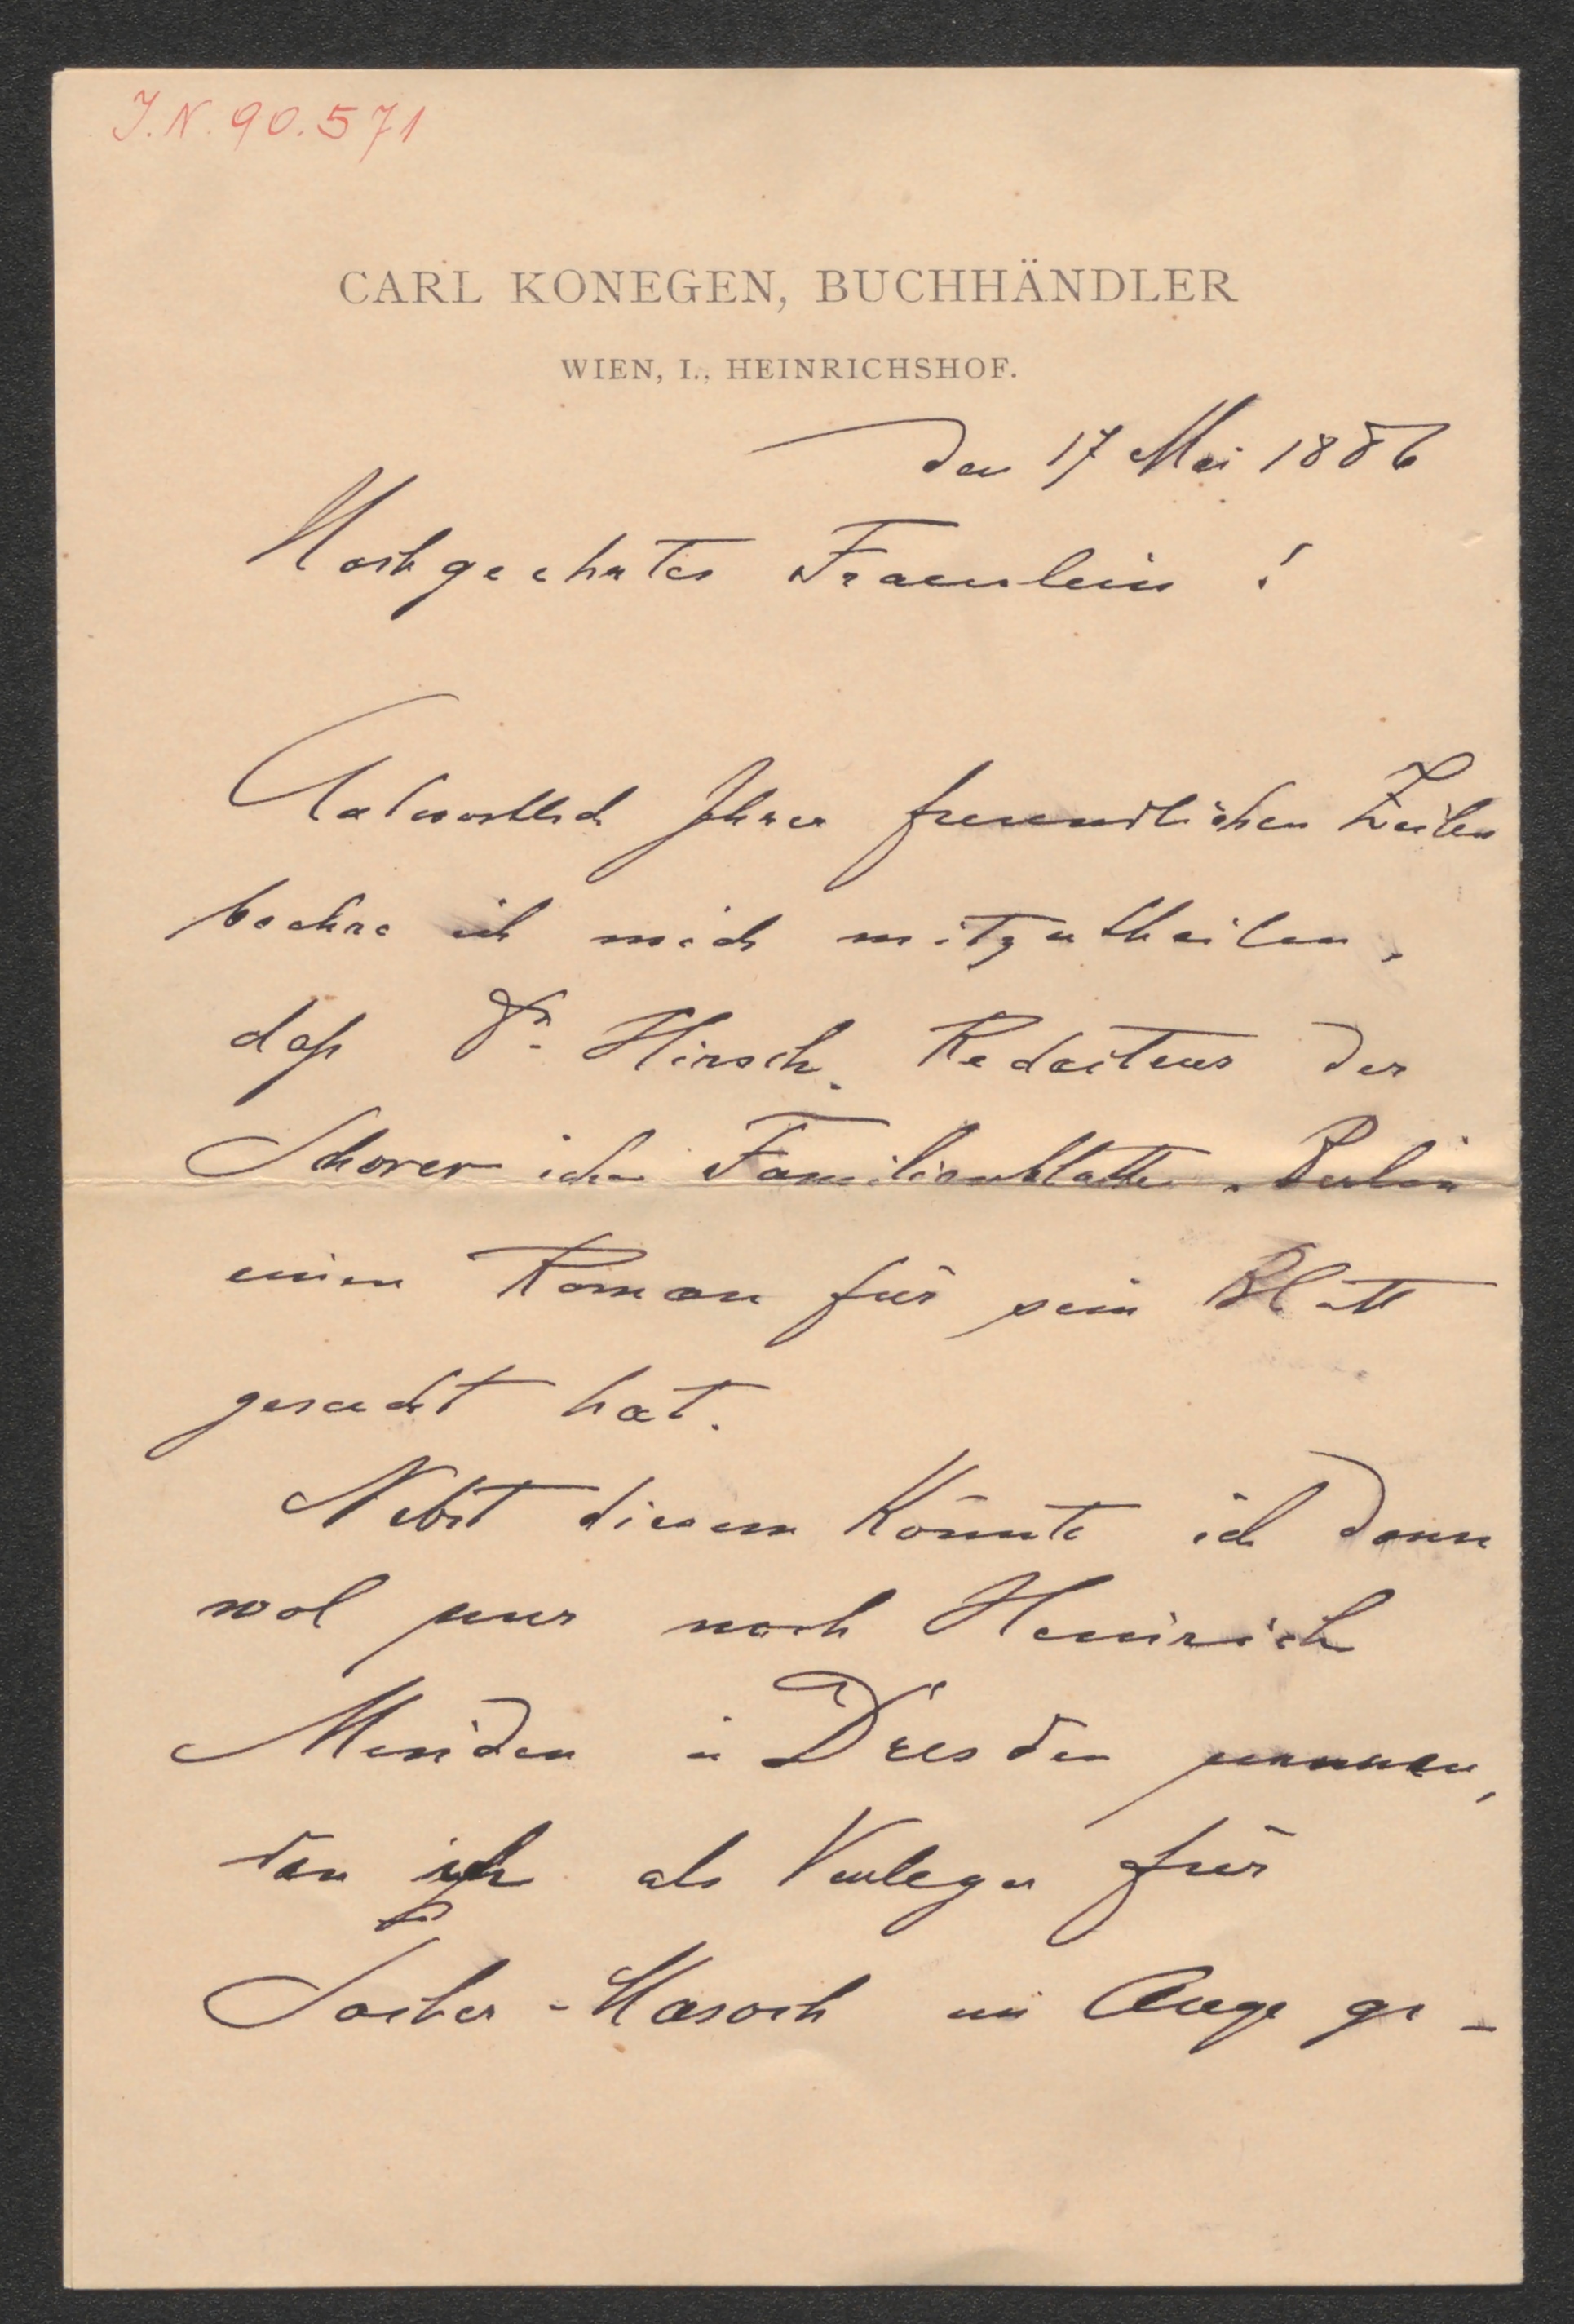 J.N. 90.571
CARL KONEGEN, BUCHHÄNDLER
WIEN, I., HEINRICHSHOF.
den 17 Mai 1886
Hochgeehrtes Fraeulein !
Antwortlich Ihrer freundlichen Zeilen
beehre ich mich mitzutheilen,
daß Dr. Hirsch, Redacteur der
Schorer'schen Familienblatte, Berlin
einen Roman für sein Blatt
gesucht hat.
Nebst diesem könnte ich dann
wol nur noch Heinrich
Minden in Dresden nennen,
den ich als Verleger für
Sacher-Masoch im Auge ge-